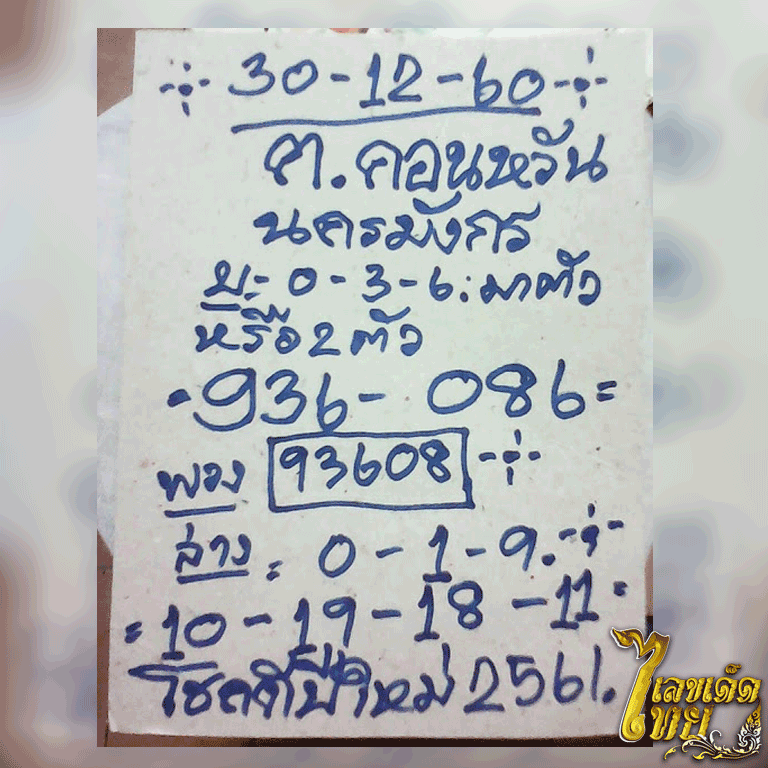 30-12-60
ต.คอนหวัน
นครมังกร
บ:- 0-3-6: มาตัว
หรือ 2 ตัว
936- 086=
พวง 93608
ล่าง = 0-1-9.
=10-19-18-11=
โชคดีปีใหม่ 2561.
เลขเด็ด
ไทย